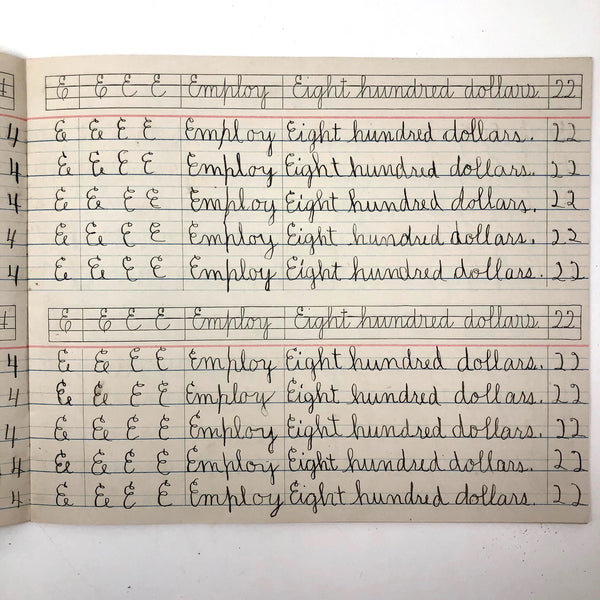 E E E E Employ Eight hundred dollars 22
4 E E E E Employ Eight hundred dollars. 22
4 E E E E Employ Eight hundred dollars. 22
4 E E E E Employ Eight hundred dollars. 22
4 E E E E Employ Eight hundred dollars. 22
4 E E E E Employ Eight hundred dollars. 22
E E E E Employ Eight hundred dollars 22
4 E E E E Employ Eight hundred dollars. 22
4 E E E E Employ Eight hundred dollars. 22
4 E E E E Employ Eight hundred dollars. 22
4 E E E E Employ Eight hundred dollars. 22
4 E E E E Employ Eight hundred dollars. 22